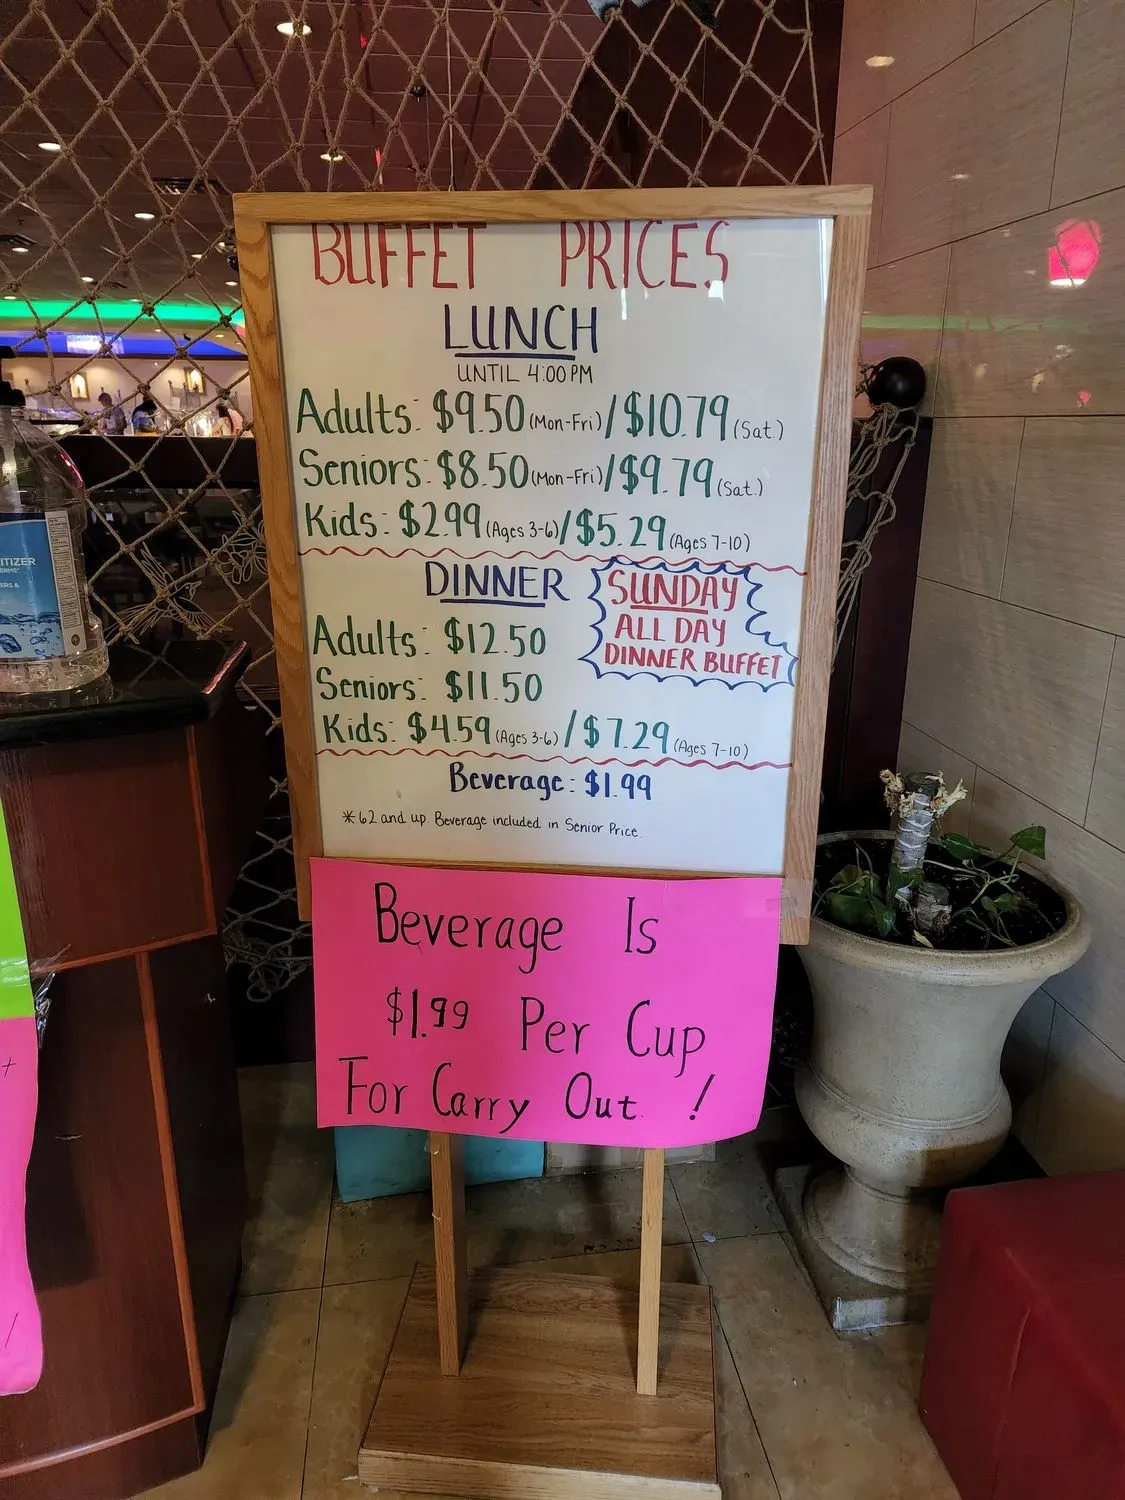 BUFFET PRICES
LUNCH
UNTIL 4:00 PM
Adults: $9.50 (Mon-Fri) / $10.79 (Sat.)
Seniors: $8.50 (Mon-Fri) / $9.79 (Sat.)
Kids: $2.99 (Ages 3-6) / $5.29 (Ages 7-10)
DINNER
Adults: $12.50
Seniors: $11.50
Kids: $4.59 (Ages 3-6) / $7.29 (Ages 7-10)
SUNDAY
ALL DAY
DINNER BUFFET
Beverage: $1.99
*62 and up. Beverage included in Senior Price.
Beverage Is
$1.99 Per Cup
For Carry Out !
ITIZER